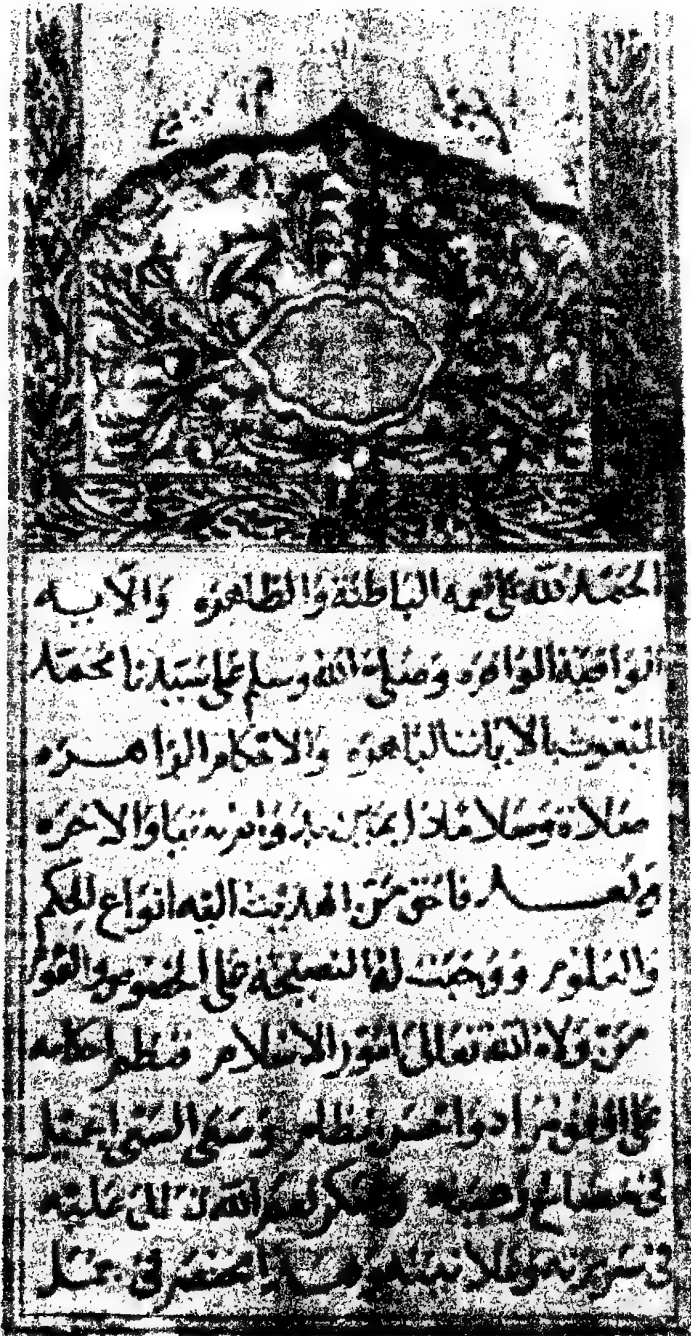 الحمد لله على نعمه الباطنة والظاهره والآيه
الوافية الوافره وصلى الله وسلم على سيدنا محمد
المبعوث بالايات الباهره والاحكام الزاهره
صلاة وسلاما والاخره
وبعد فاحق من اهديت اليه انواع الحكم
والعلوم ووجبت له النصيحة على الخصوص والعموم
من ولاه الله تعالى امور الاسلام فنظم احكامه
على نظام وسعى السعى الجميل
في مصالح وشكر لله
في سريرته وعلانيته مختصر في